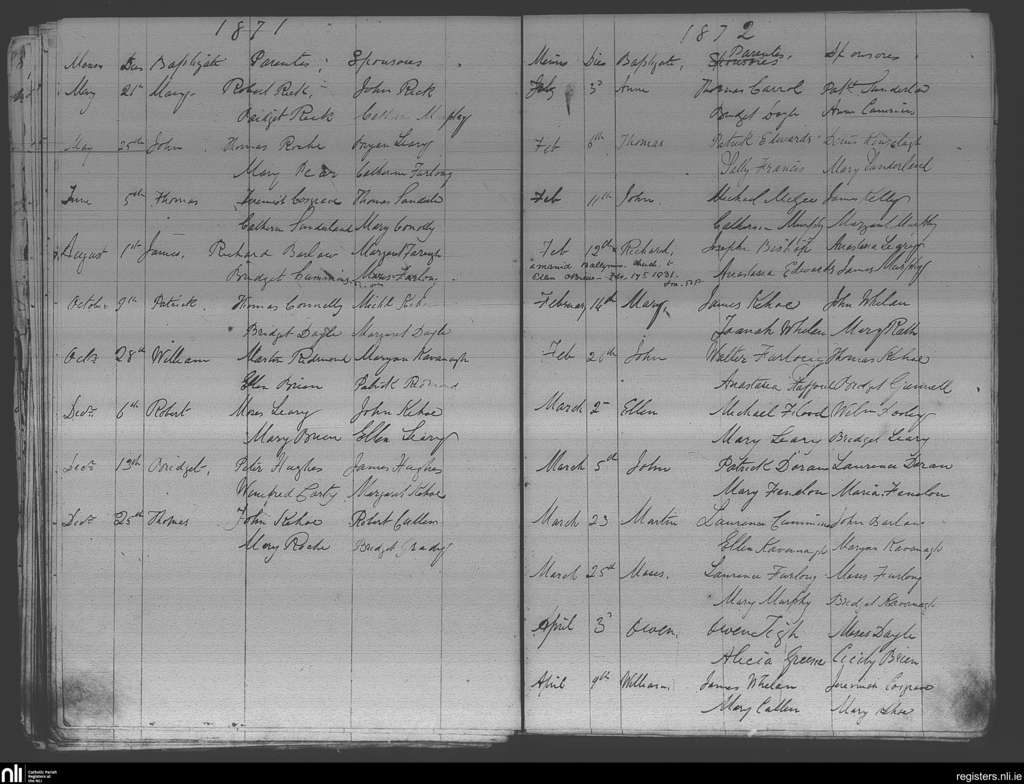 1871
Menses Dies Baptizati Parentes, Sponsores
May 21st Mary Robert Reck, John Reck
Bridget Reck Catherine Murphy
May 25th John Thomas Roche Leary
Mary Catherine Furlong
June 5th Thomas Jeremiah Cosgrave Thomas
Cathern Sunderland Mary Connolly
August 1st James, Richard Barlow Margaret
Bridget Cummins Moses Furlong
October 9th Patrick Thomas Connolly Michl
Bridget Dagle Margaret Dagle
Octr 28th William Martin Redmond Maryan Kavanagh
Ellen Brien Patrick Redmond
Decr 6th Robert Moses Leary John Kehoe
Mary Brien Ellen Leary
Decr 19th Bridget, Peter Hughes James Hughes
Winefred Carty Margaret Kehoe
Decr 25th Thomas John Kehoe Robert Cullen
Mary Roche Bridget Grady
1872
Mensis Dies Baptizati, Parentes, Sponsores
Feby 3 Anne Thomas Carrol Patk Sunderlan
Bridget Dagle Ann Cummins
Feb 6th Thomas Patrick Edwards Denis
Sally Francis Mary Sunderland
Feb 11th John Michael McGee James Kelly
Catherine Murphy Margaret Murphy
Feb 12th Richard, Joseph Anastasia
Ellen O'Brien Feb. 1931. Anastasia Edwards James Murphy
February 14th Mary James Kehoe John Whelan
Joanah Whelan Mary Rath
Feb 20th John Walter Furlong Thomas Kehoe
Anastasia Stafford Bridget
March 2 Ellen Michael Flood
Mary Leary Bridget Leary
March 5th John Patrick Doran Laurence Doran
Mary Fenelon Maria Fenelon
March 23 Martin Laurence Cummins John Barlow
Ellen Kavanagh Maryan Kavanagh
March 25th Moses. Laurence Furlong Moses Furlong
Mary Murphy Bridget Kavanagh
April 3 Owen. Owen Tigh Moses Dagle
Alicia Greene Cicily Brien
April 9th William. James Whelan Jeremiah Cosgrave
Mary Cullen Mary
nli Catholic Parish Registers at the NLI
registers.nli.ie